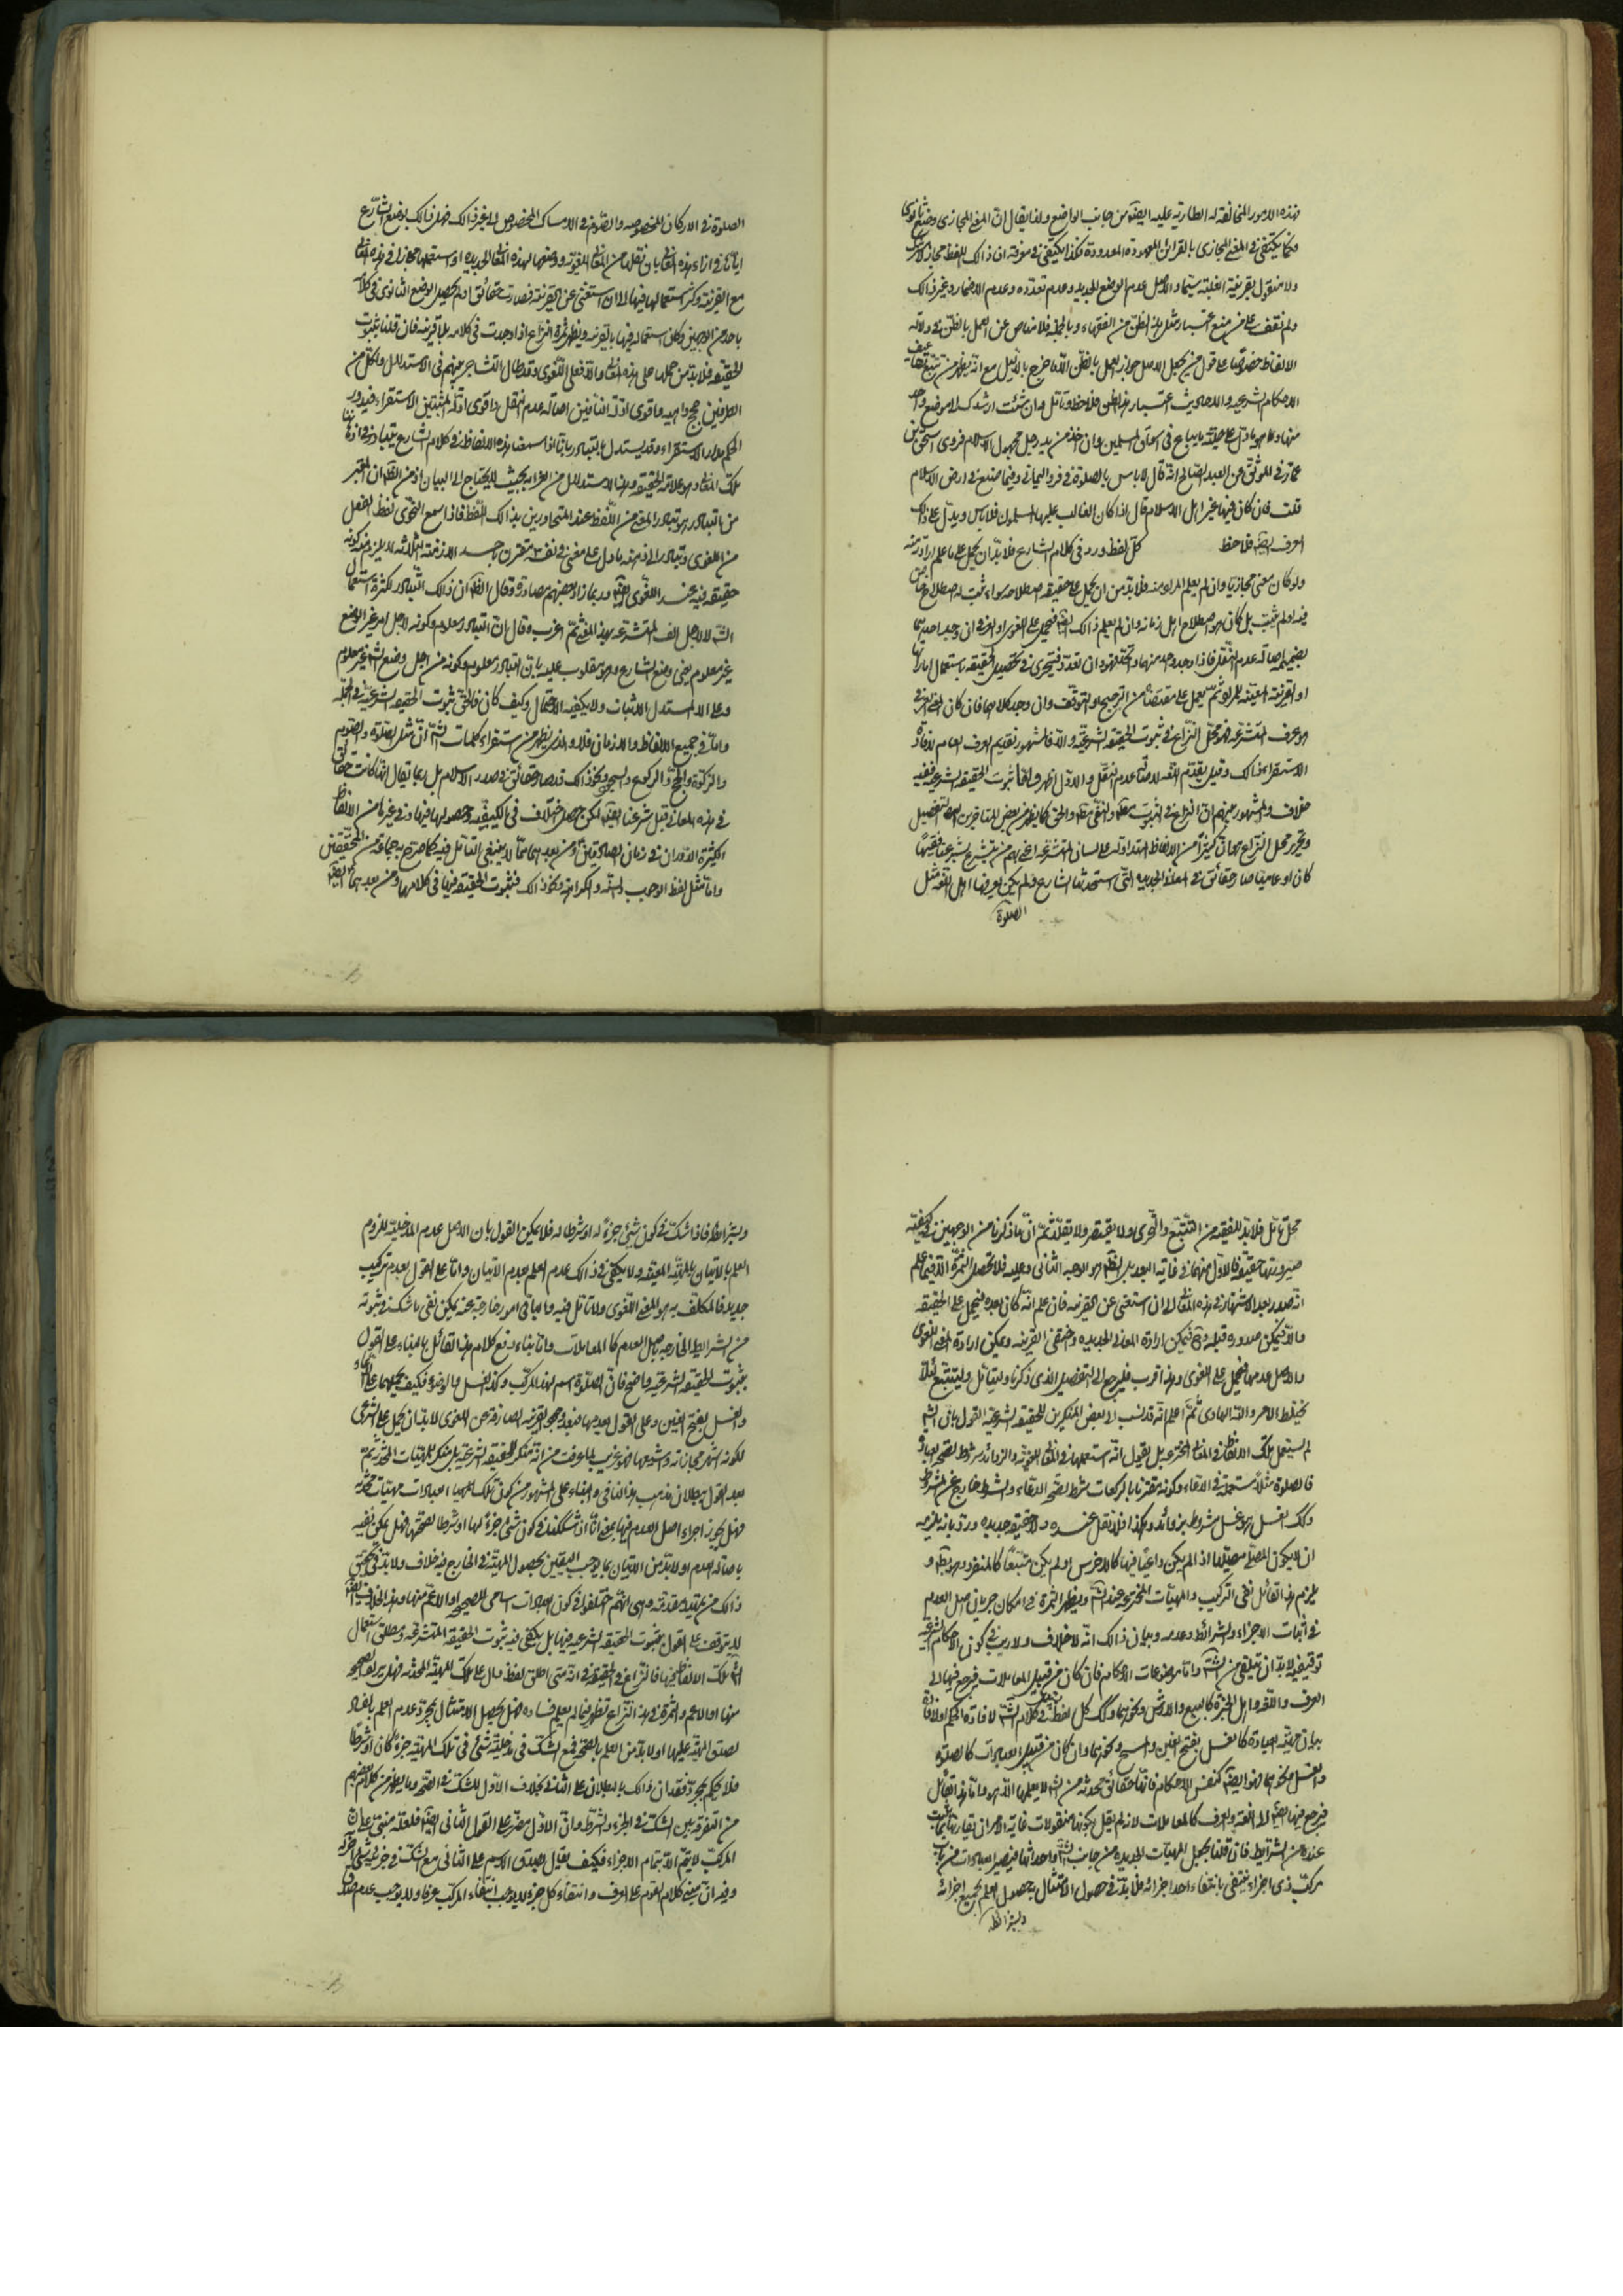 فهذه الامور المخالفة له الطارية عليه ايضا من جانب الواضع ولذا يقال ان المعنى المجازى وضع ثانوى
فكما يكتفى فى المعنى المجازى بالقرائن المعهودة المعدودة فكذا يكتفى فى معرفة ان ذالك اللفظ مجاز لا مشترك
ولا منقول بقرينة الغلبة سيما والاصل عدم الوضع الجديد وعدم تعدده وعدم الاضمار وغير ذالك
ولم نقف على من منع اعتبار مثل هذا الظن من الفقهاء وبالجملة فلا مناص عن العمل بالظن فى دلالة
الالفاظ خصوصا على قول من يجعل الاصل جواز العمل بالظن الا ما خرج بالدليل مع انه يظهر من تتبع تضاعيف
الاحكام الشرعيه والاحاديث اعتبار هذا الظن فلاحظ وتأمل وان شئت ارشدك لا موضع واحد
منها وهو ما دل على حلية ما يباع فى اسواق المسلمين وان اخذ من يد رجل مجهول الاسلام فروى اسحق بن
عمار فى الموثق عن العبد الصالح انه قال لا باس بالصلوة فى فرو اليمانى وفيما صنع فى ارض الاسلام
قلت فان كان فيها غير اهل الاسلام قال اذا كان الغالب عليها المسلمون فلا باس ويدل على ذالك
العرف ايضا فلاحظ كل لفظ ورد فى كلام الشارع فلا بد ان يحمل على ما علم ارادته منه
ولو كان معنى مجازيا وان لم يعلم المراد منه فلا بد من ان يحمل على حقيقة اصطلاحه سواء ثبت له اصطلاح خاص
فيه او لم يثبت بل كان هو اصطلاح اهل زمانه وان لم يعلم ذالك ايضا فيحمل على اللغوى او العرفى ان وجد احدهما
بضميمة اصالة عدم النقل فاذا وجد واحد منهما وان تعدد فيتحرى فى تحصيل الحقيقة باستعمال اماراتها
او القرينة المعينة للمراد ثم يعمل على مقتضاه من الترجيح او التوقف وان وجد كلاهما فان كان المعنى العرفى
هو عرف المتشرعة فهو محل النزاع فى ثبوت الحقيقة الشرعية والا فالمشهور تقديم العرف العام لافادة
الاستقراء ذالك وقيل يقدم اللغة لاصالة عدم النقل والاول اظهر واما ثبوت الحقيقة الشرعيه ففيه
خلاف والمشهور بينهم ان النزاع فى الثبوت مطلقا والنفى مطلقا والحق كما يظهر من بعض المتاخرين التفصيل
وتحرير محل النزاع هو ان كثيرا من الالفاظ المتداولة على لسان المتشرعة اعنى بهم من يتشرع بشرعنا فقيها
كان او عاميا صار حقائق فى المعانى الجديده التى استحدثها الشارع ولم يكن يعرفها اهل اللغة مثل
الصلوة
الصلوة فى الاركان المخصوصه والصوم فى الامساك المخصوص الى غير ذالك فهل ذالك بوضع الشارع
اياها فى ازاء هذه المعانى بان نقلها من المعانى اللغويه ووضعها لهذه المعانى الجديده او استعملها مجازا فى هذه المعانى
مع القرينه وكثر استعمالها فيها الى ان استغنى عن القرينه فصارت حقائق او لم يحصل الوضع الثانوى فى كلامه
باحد من الوجهين وكان استعماله فيها بالقرينه ويظهر ثمرة النزاع اذا وجدت فى كلامه بلا قرينه فان قلنا بثبوت
الحقيقه فلا بد من حملها على هذه المعانى والا فعلى اللغوى وقد طال التشاجر بينهم فى الاستدلال ولكل من
الطرفين حجج واهيه واقوى ادلة النافين اصالة عدم النقل واقوى ادلة المثبتين الاستقراء فيدور
الحكم مدار الاستقراء وقد يستدل بالتبادر بانا اذا سمعنا هذه الالفاظ فى كلام الشارع يتبادر فى اذهاننا
تلك المعانى وهو علامة الحقيقه وهذا الاستدلال من الغرابة بحيث لا يحتاج الى البيان اذ من الظاهر ان المعتبر
من التبادر هو تبادر المعنى من اللفظ عند المتحاورين بذالك اللفظ فاذا سمع النحوى لفظ الفعل
من اللغوى وتبادر الى ذهنه ما دل على معنى فى نفسه مقترن باحد الازمنة الثلاثه لا يلزم منه كونه
حقيقه فيه عند اللغوى ايضا وربما زاد بعضهم مصادرة وقال الظاهر ان ذالك التبادر لكثرة استعمال
الشارع لا لاجل الف المتشرعة بهذا المعنى ثم اغرب وقال ان التبادر معلوم وكونه لاجل امر غير الوضع
غير معلوم يعنى وضع الشارع وهو مقلوب عليه بان التبادر معلوم وكونه من اجل وضع الشارع غير معلوم
وعلى المستدل الاثبات ولا يكفيه الاحتمال وكيف كان فالحق ثبوت الحقيقه الشرعية فى الجمله
واما فى جميع الالفاظ والازمان فلا والذى يظهر من استقراء كلمات الشارع ان مثل الصلوة والصوم
والزكوة والحج والركوع والسجود ونحو ذالك قد صار حقائق فى صدر الاسلام بل ربما يقال انها كانت حقائق
فى هذه المعانى قبل شرعنا ايضا لكن حصل اختلاف فى الكيفيه وحصولها فيها وفى غيرها من الالفاظ
الكثيرة الدوران فى زمان الصادقين ومن بعدهما مما لا ينبغى التامل فيه كما صرح به جماعة من المحققين
واما مثل لفظ الوجوب والسنة والكراهة ونحو ذالك فثبوت الحقيقه فيها فى كلامهما ومن بعدهما ايضا
محل تامل فلا بد للفقيه من التتبع والتحرى ولا يقتصر ولا يقلد ثم ان ما ذكرنا من الوجهين فى كيفية
صيرورتها حقيقة فالاول منهما فى غاية البعد بل الظاهر هو الوجه الثانى وعليه فلا تحصل الثمرة الا فيما علم
انه صدر بعد الاشتهار فى هذه المعانى الى ان استغنى عن القرينه فان علم انه كان بعده فيحمل على الحقيقه
والا فيمكن صدوره قبله وح فيمكن ارادة المعانى الجديده واختفى القرينه ويمكن ارادة المعنى اللغوى
والاصل عدمها فيحمل على اللغوى وهذا اقرب فليرجع الى التفصيل الذى ذكرنا وليتامل وليتتبع لئلا
يختلط الامر والله الهادى ثم اعلم انه قد نسب الى بعض المنكرين للحقيقه الشرعيه القول بان الشارع
لم يستعمل تلك الالفاظ فى المعانى المخترعه بل يقول انه استعملها فى المعانى اللغويه والزوائد شروط لصحة العبادة
فالصلوة مثلا مستعملة فى الدعاء وكونه مقترنا بالركعات شرط لصحة الدعاء والشرط خارج عن المشروط
وكك الغسل هو غسل بشروط بزوائد وهكذا فلا نقل عنده ولا حقيقه جديده ورد بانه يلزمه
ان لا يكون المصلى مصليا اذا لم يكن داعيا فيها كالاخرس او لم يكن متبعا كالمنفرد وهو بط و
يلزم هذا القائل نفى التركيب والمهيات المخترعه عند الشارع ويظهر الثمرة فى امكان جريان اصل العدم
فى اثبات الاجزاء والشرائط وعدمه وبيان ذالك انه لا خلاف ولا ريب فى كون الاحكام الشرعيه
توقيفيه لا بد ان يتلقى من الشارع واما موضوعات الاحكام فان كان من قبيل المعاملات فيرجع فيها الى
العرف واللغة واهل الخبرة كالبيع والارش ونحوهما وكك كل لفظ استعمل فى كلام الشارع لافادة الحكم او لافادة
بيان مهية العبادة كالغسل بفتح الغين والمسح ونحوهما وان كان من قبيل العبادات كالصلوة
والغسل ونحوهما فهو ايضا كنفس الاحكام فانها حقائق محدثه من الشارع لا يعلمها الا هو واما هذا القائل
فيرجع فيها ايضا الى اللغة والعرف كالمعاملات لانه لم يقل بكونها منقولات غاية الامر ان تقارنها بما ثبت
عنده من الشرائط فان قلنا بجعل المهيات الجديده من جانب الشارع واحداثها فيصير العبادات من باب
مركب ذى اجزاء ينتفى بانتفاء احد اجزائه فلا بد فى حصول الامتثال به حصول العلم بجميع اجزائه
وشرائطه
وشرائطه فاذا شك فى كون شئ جزء له او شرطا له فلا يمكن القول بان الاصل عدم المدخلية للزوم
العلم بالاتيان بالمهية المعينه ولا يكفى فى ذالك عدم العلم بعدم الاتيان واما على القول بعدم تركيب
جديد فالمكلف به هو المعنى اللغوى ولا تامل فيه والباقى امور خارجة عنه يمكن نفى ما شك فى ثبوته
من الشرائط الخارجه باصل العدم كالمعاملات واما بناء دفع كلام هذا القائل بالبناء على القول
بثبوت الحقيقه الشرعيه واضح فان الصلوة اسم لهذا المركب وكذا الغسل والوضوء فكيف يحملهما على الدعاء
والغسل بفتح الغين وعلى القول بعدمها فبعد وجود القرينه الصارفه عن اللغوى لا بد ان يحمل على الشرعى
لكونه اشهر مجازاته وشيوعها فهو غريب لما عرفت من انه منكر للحقيقه الشرعيه بل منكر للمهيات المحدثه ثم
بعد القول ببطلان مذهب هذا النافى والبناء على المشهور من كون تلك العبادات مهيات محدثه
فهل يجوز اجراء اصل العدم فيها بمعنى انا اذا شككنا فى كون شئ جزء لها او شرطا لصحتها فهل يمكن نفيه
باصالة العدم او لا بد من الاتيان بما يوجب اليقين بحصول المهية فى الخارج فيه خلاف ولا بد فى تحقيق
ذالك من تمهيد مقدمة وهى انهم اختلفوا فى كون العبادات اسامى للصحيحه او الاعم منها وهذا الخلاف ايضا
لا يتوقف على القول بثبوت الحقيقه الشرعيه فيها بل يكفى فيه ثبوت الحقيقه المتشرعه ومطلق استعمال
الشارع تلك الالفاظ فيها فالنزاع فى الحقيقة فى انه متى اطلق لفظ دال على تلك المهية المحدثه فهل يراد الصحيحه
منها او الاعم والثمرة فى هذا النزاع تظهر فيما لم يعلم فساده فهل يحصل الامتثال بمجرد عدم العلم بالفساد
لصدق المهية عليها او لا بد من العلم بالصحة فمع الشك فى مدخلية شئ فى تلك المهية جزء كان او شرطا
فلا يحكم بمجرد فقدان ذالك بالبطلان على الثانى بخلاف الاول للشك فى الصحة وما يظهر من كلام بعضهم
من التفرقة بين الشك فى الجزء والشرط وان الاول مضر على القول الثانى ايضا فلعله مبنى على ان
المركب لا يتم الا بتمام الاجزاء فكيف يقال بصدق الاسم على الثانى مع الشك فى جزئيه شئ آخر له
وفيه ان مبنى كلام القوم على العرف وانتفاء كل جزء لا يوجب انتفاء المركب عرفا ولا يوجب عدم صدق